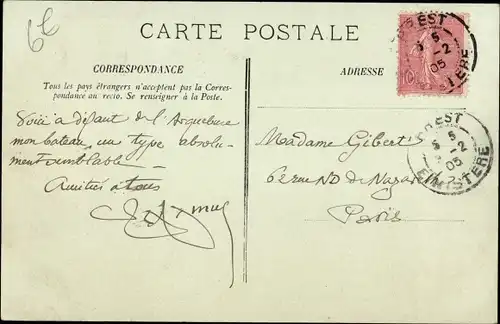 6€
CARTE POSTALE
CORRESPONDANCE
Tous les pays étrangers n'acceptent pas la Corres-
pondance au recto. Se renseigner à la Poste.
ADRESSE
Voici à défaut de l'Arquebuse
mon bateau, un type absolu-
ment semblable —
Amitiés à tous
Madame Gibert
62 rue ND de Nazareth
Paris
10
BREST
5
5 -2
05
FINISTERE
BREST
5
5 -2
05
FINISTERE